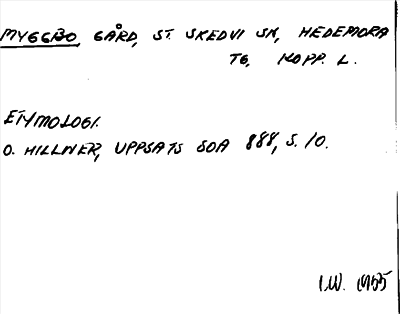 MYGGBO, GÅRD, ST. SKEDVI SN, HEDEMORA
TG, KOPP. L.
ETYMOLOGI.
O. HILLNER, UPPSATS SOA 888, S. 10.
I.W. 1955